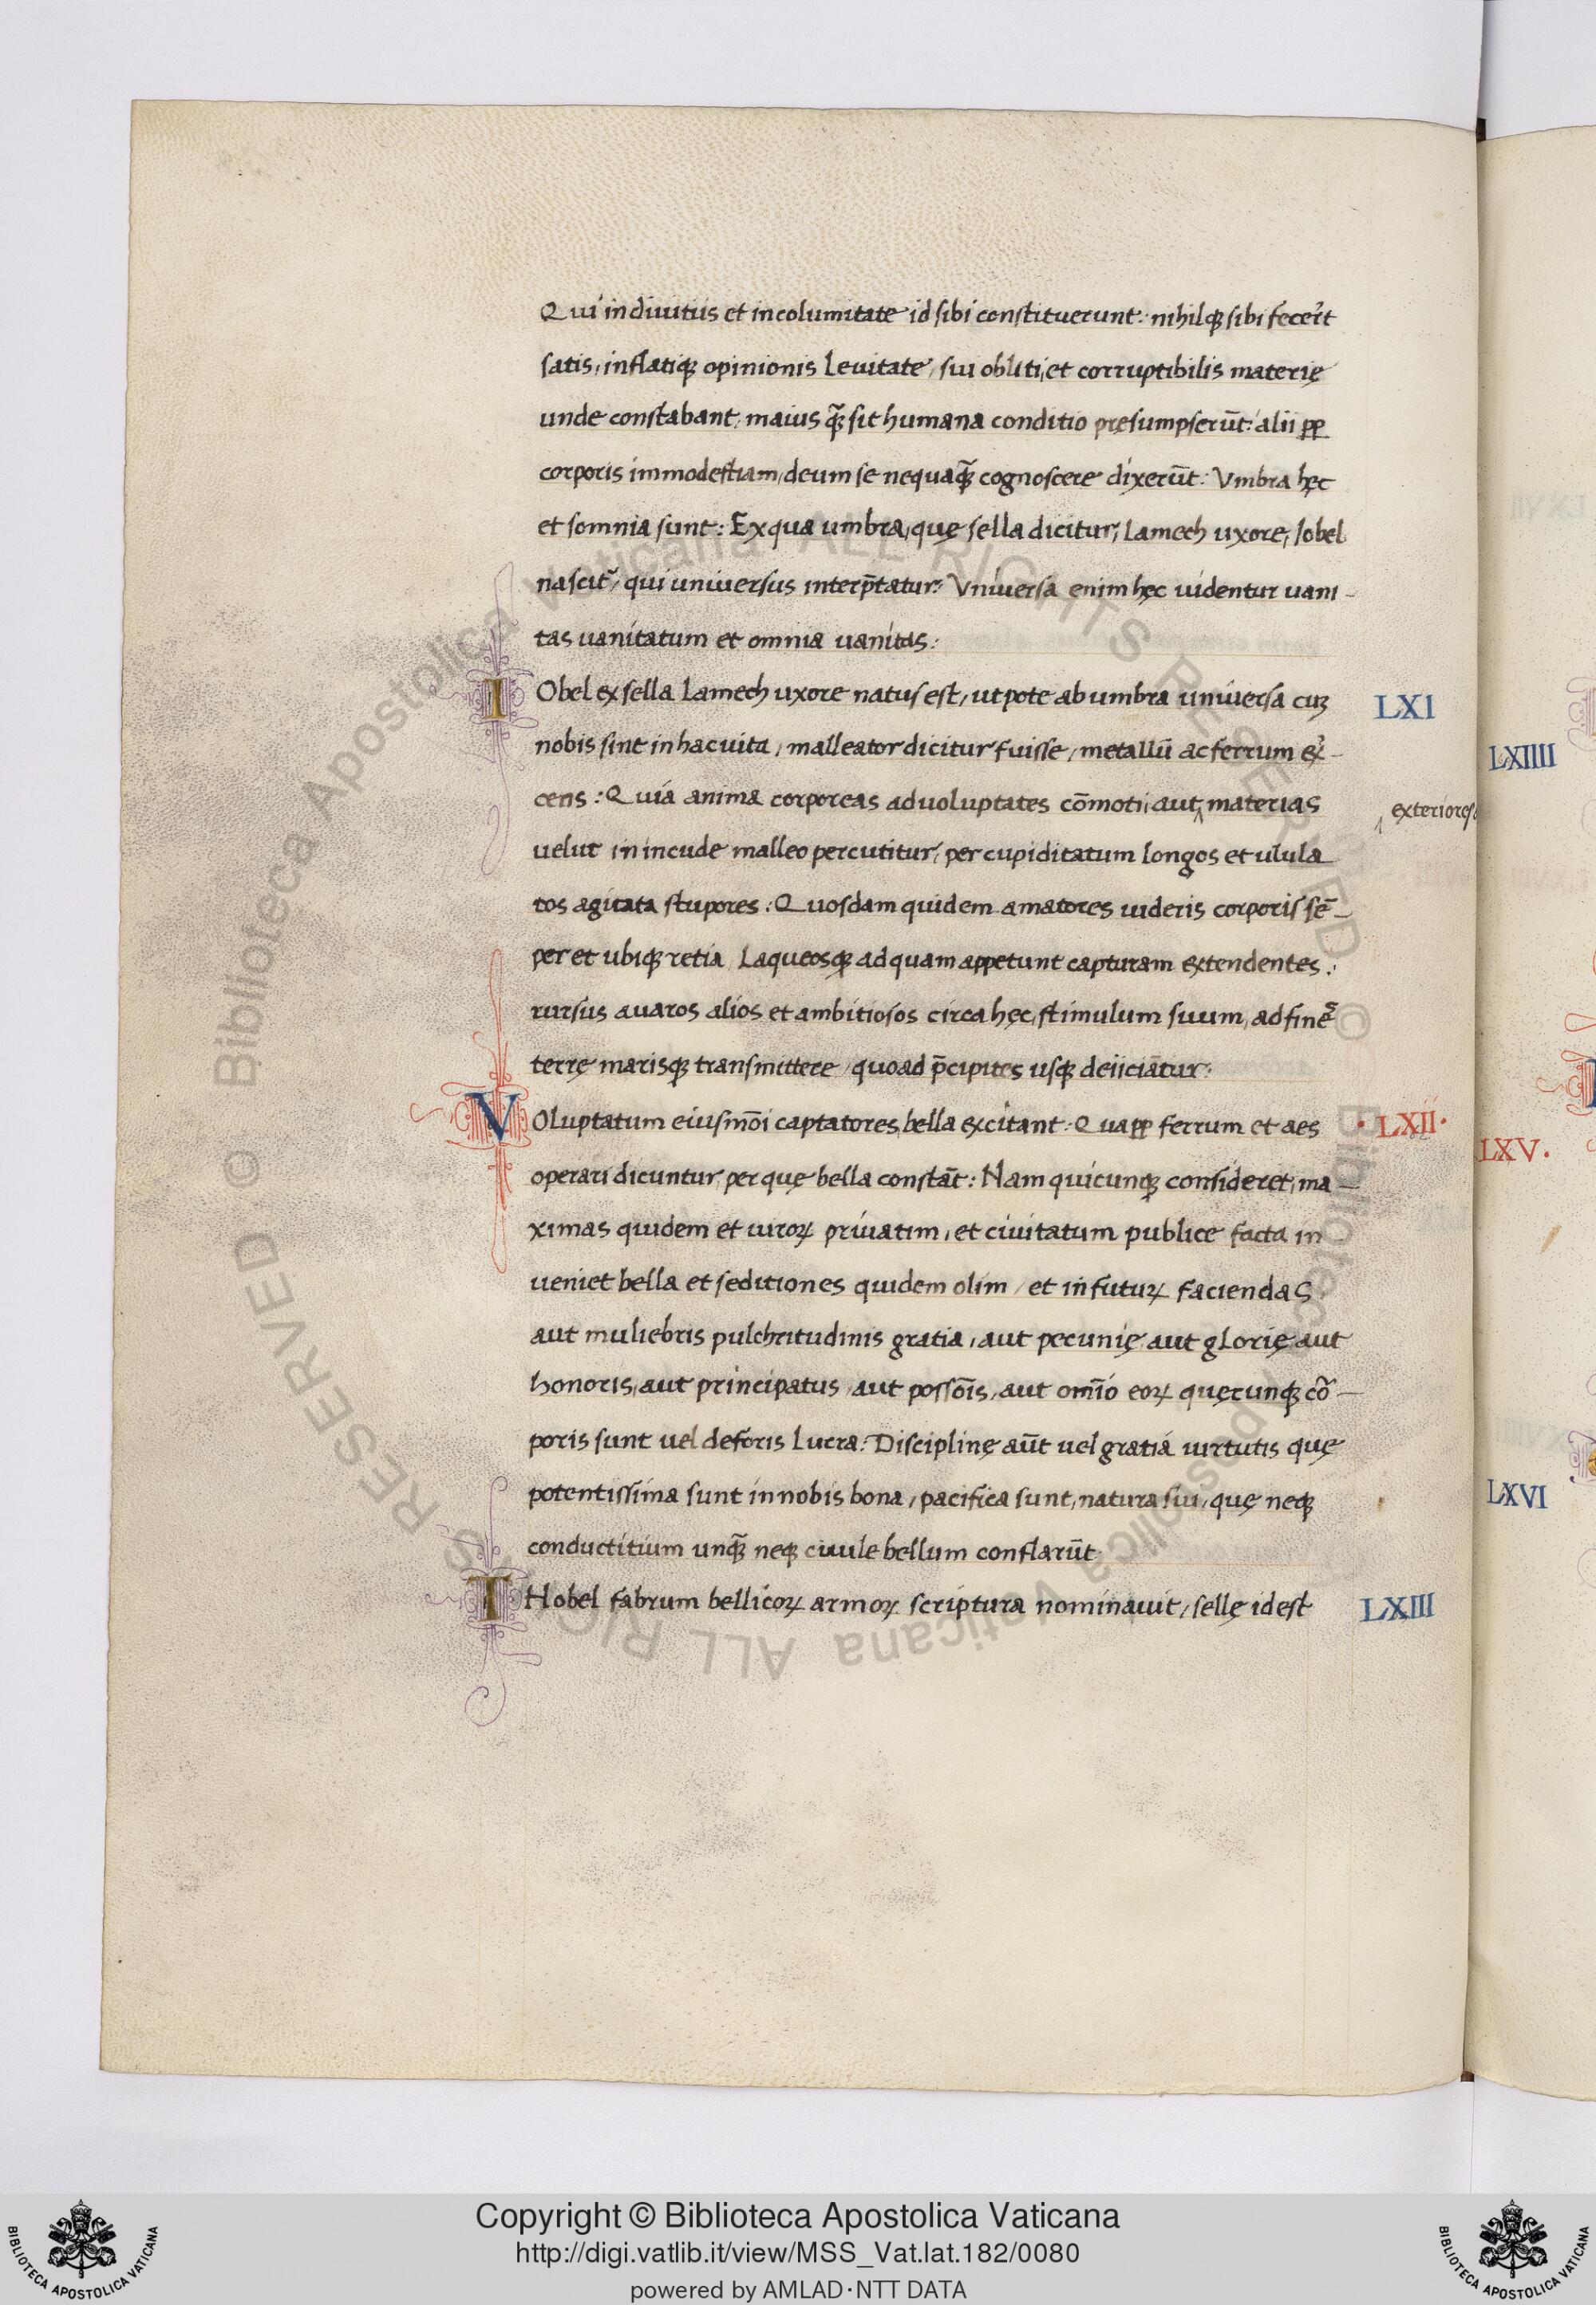 Qui in diuitiis et incolumitate id sibi constituerunt: nihilqꝫ sibi fecer̃t
satis, inflatiqꝫ opinionis leuitate, sui obliti, et corruptibilis materię
unde constabant, maius q̃ꝫ sit humana conditio pręsumpserūt: alii ꝓꝑ
corporis immodestiam, deum se nequaq̃ꝫ cognoscere dixerūt: Vmbra hęc
et somnia sunt: Ex qua umbra, quę sella dicitur, Lamech uxore, Iobel
nascit᷑, qui uniuersus interp̄tatur: Vniuersa enim hęc uidentur uani-
tas uanitatum et omnia uanitas:
IObel ex sella Lamech uxore natus est, utpote ab umbra uniuersa cuꝫ
nobis sint in hac uita, malleator dicitur fuisse, metallū ac ferrum ex̉-
cens: Quia anima corporeas ad uoluptates cōmoti, aut ‸ materias
‸ exteriores
uelut in incude malleo percutitur, per cupiditatum longos et ulula
tos agitata stupores: Quosdam quidem amatores uideris corporis sē-
per et ubiqꝫ retia Laqueosqꝫ ad quam appetunt capturam extendentes:
rursus auaros alios et ambitiosos circa hęc, stimulum suum, ad finē
terrę marisqꝫ transmittere, quoad p̄cipites usqꝫ deiiciātur:
VOluptatum eiusmōi captatores, bella excitant: Quaꝓꝑ ferrum et aes
operari dicuntur, per quę bella constāt: Nam quicunqꝫ consideret, ma-
ximas quidem et uiroꝝ priuatim, et ciuitatum publice facta in-
ueniet bella et seditiones quidem olim, et in futuꝝ faciendas
aut muliebris pulchritudinis gratia, aut pecunię aut glorię aut
honoris, aut principatus, aut possōis, aut omīo eoꝝ quęcunqꝫ cō-
poris sunt uel deforis Lucra: Disciplinę aūt uel gratia uirtutis quę
potentissima sunt in nobis bona, pacifica sunt, natura sui, quę neqꝫ
conductitium unq̃ꝫ neqꝫ ciuile bellum conflarūt
THobel fabrum bellicoꝝ armoꝝ scriptura nominauit, sellę idest
LXI
·LXII·
LXIII
LXIIII
LXV.
LXVI
© Biblioteca Apostolica Vaticana ALL RIGHTS RESERVED © Biblioteca Apostolica Vaticana ALL RIGHTS RESERVED
Copyright © Biblioteca Apostolica Vaticana
http://digi.vatlib.it/view/MSS_Vat.lat.182/0080
powered by AMLAD·NTT DATA
BIBLIOTECA APOSTOLICA VATICANA
BIBLIOTECA APOSTOLICA VATICANA